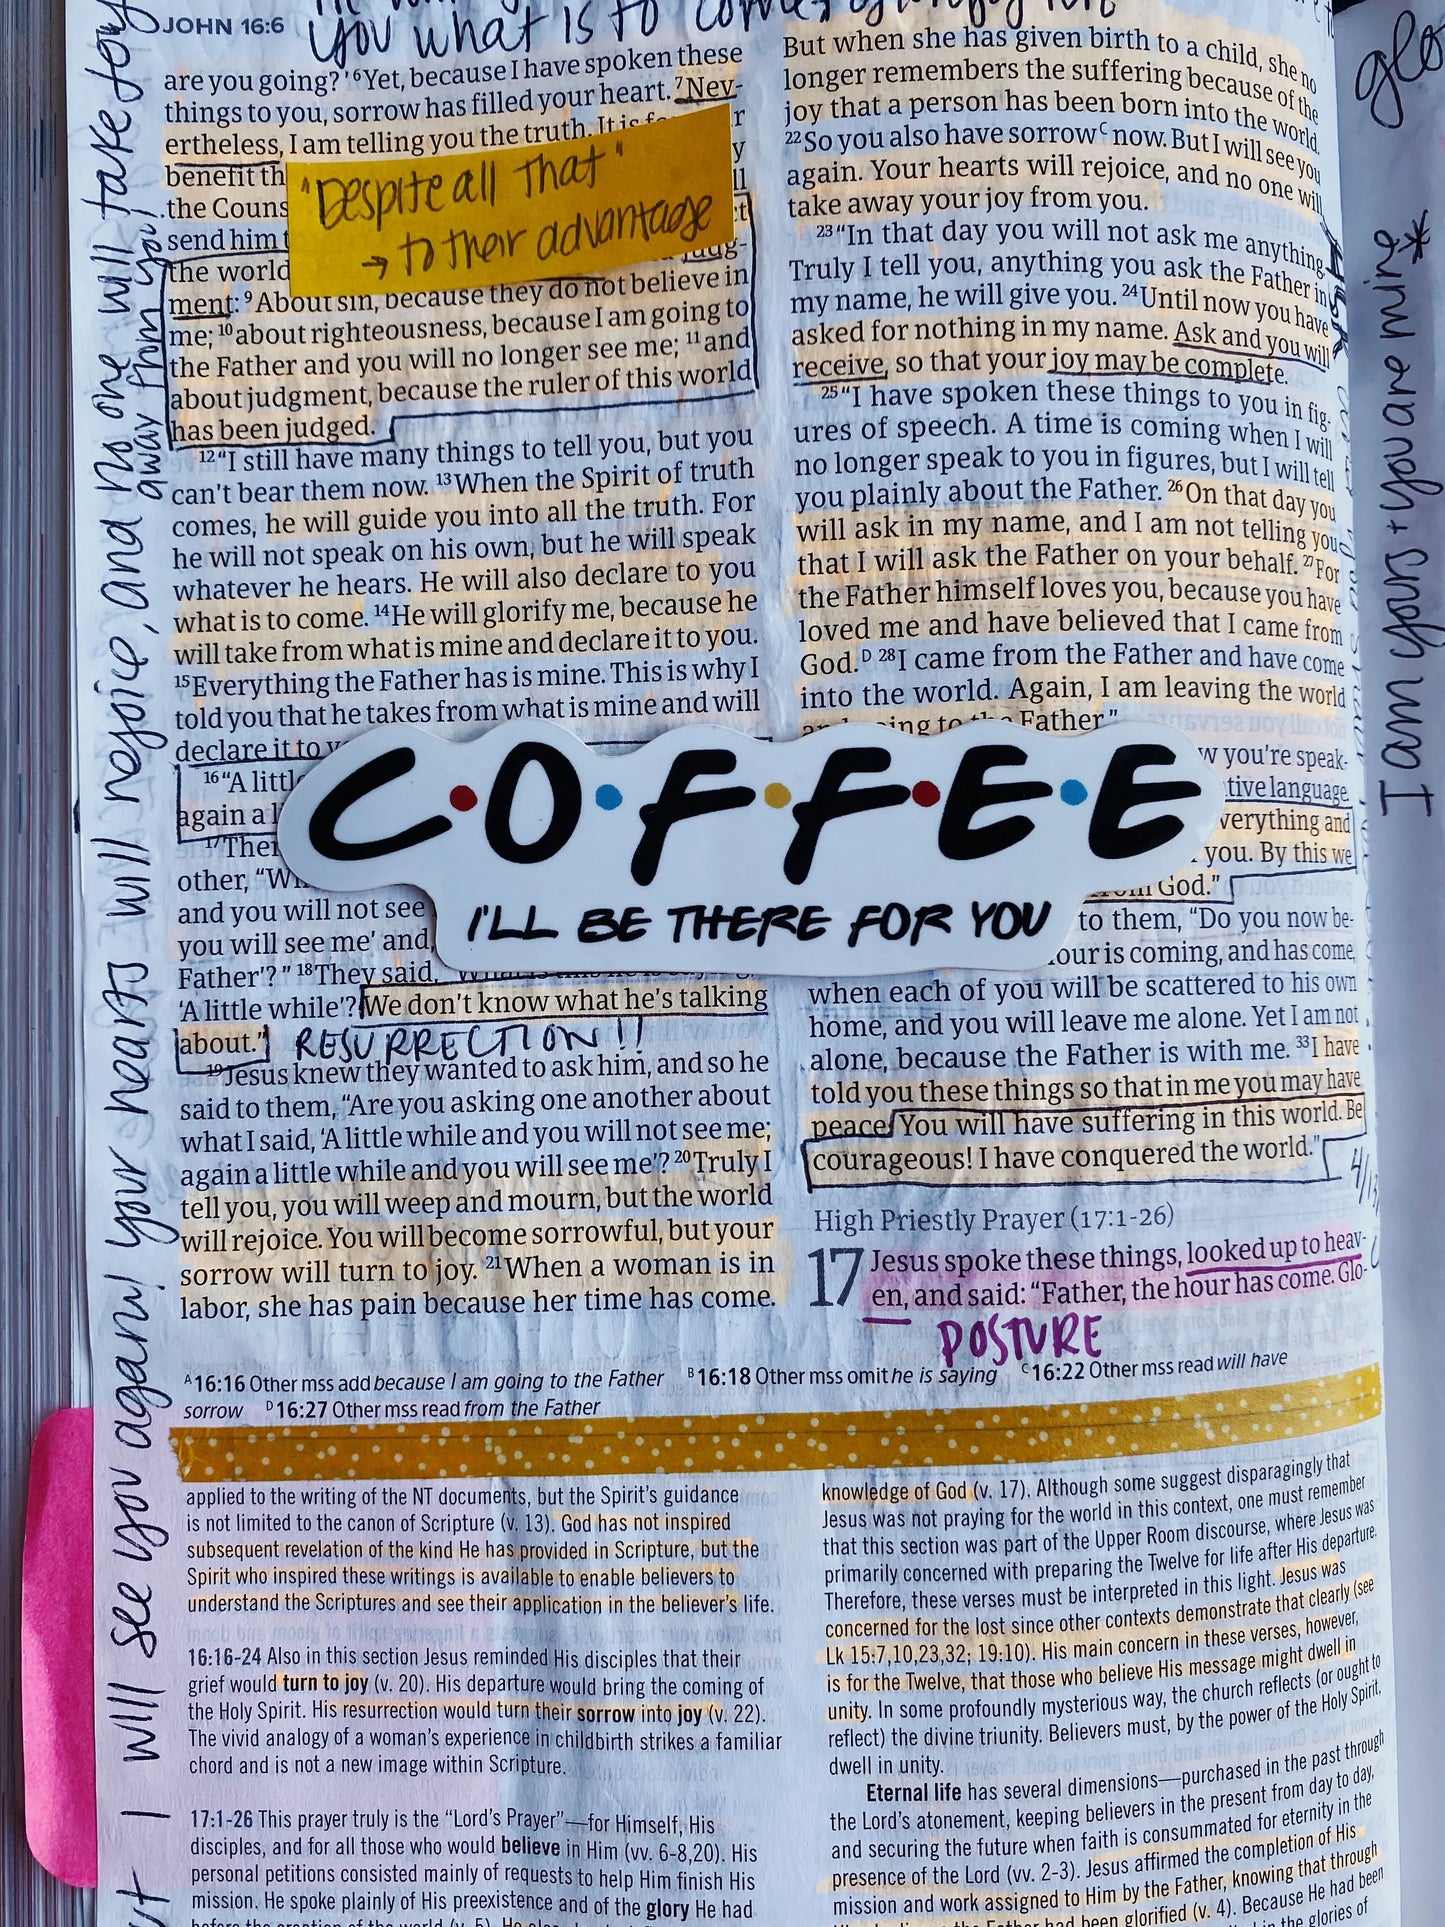 you what is to come
JOHN 16:6
are you going?’ ⁶Yet, because I have spoken these
things to you, sorrow has filled your heart. ⁷Nev-
ertheless, I am telling you the truth. It is
benefit
the
send him
the world
"Despite all that"
→ to their advantage
judg-
ment: ⁹About sin, because they do not believe in
me; ¹⁰about righteousness, because I am going to
the Father and you will no longer see me; ¹¹and
about judgment, because the ruler of this world
has been judged.
¹²“I still have many things to tell you, but you
can’t bear them now. ¹³When the Spirit of truth
comes, he will guide you into all the truth. For
he will not speak on his own, but he will speak
whatever he hears. He will also declare to you
what is to come. ¹⁴He will glorify me, because he
will take from what is mine and declare it to you.
¹⁵Everything the Father has is mine. This is why I
told you that he takes from what is mine and will
declare it to
¹⁶“A
again a
other,
and you will not see
you will see me’ and,
Father’?” ¹⁸They said,
‘A little while’? We don’t know what he’s talking
about.” RESURRECTION!!
¹⁹Jesus knew they wanted to ask him, and so he
said to them, “Are you asking one another about
what I said, ‘A little while and you will not see me;
again a little while and you will see me’? ²⁰Truly I
tell you, you will weep and mourn, but the world
will rejoice. You will become sorrowful, but your
sorrow will turn to joy. ²¹When a woman is in
labor, she has pain because her time has come.
But when she has given birth to a child, she no
longer remembers the suffering because of the
joy that a person has been born into the world.
²²So you also have sorrowᶜ now. But I will see you
again. Your hearts will rejoice, and no one will
take away your joy from you.
²³“In that day you will not ask me anything.
Truly I tell you, anything you ask the Father in
my name, he will give you. ²⁴Until now you have
asked for nothing in my name. Ask and you will
receive, so that your joy may be complete.
²⁵“I have spoken these things to you in fig-
ures of speech. A time is coming when I will
no longer speak to you in figures, but I will tell
you plainly about the Father. ²⁶On that day you
will ask in my name, and I am not telling you
that I will ask the Father on your behalf. ²⁷For
the Father himself loves you, because you have
loved me and have believed that I came from
God.ᴰ ²⁸I came from the Father and have come
into the world. Again, I am leaving the world
Father.”
you’re speak-
language
everything and
you. By this we
God.”
to them, “Do you now be-
is coming, and has come,
when each of you will be scattered to his own
home, and you will leave me alone. Yet I am not
alone, because the Father is with me. ³³I have
told you these things so that in me you may have
peace. You will have suffering in this world. Be
courageous! I have conquered the world.”
High Priestly Prayer (17:1-26)
17 Jesus spoke these things, looked up to heav-
en, and said: “Father, the hour has come. Glo-
POSTURE
C·O·F·F·E·E
I'LL BE THERE FOR YOU
ᴬ16:16 Other mss add because I am going to the Father ᴮ16:18 Other mss omit he is saying ᶜ16:22 Other mss read will have
sorrow ᴰ16:27 Other mss read from the Father
applied to the writing of the NT documents, but the Spirit’s guidance
is not limited to the canon of Scripture (v. 13). God has not inspired
subsequent revelation of the kind He has provided in Scripture, but the
Spirit who inspired these writings is available to enable believers to
understand the Scriptures and see their application in the believer’s life.
16:16-24 Also in this section Jesus reminded His disciples that their
grief would turn to joy (v. 20). His departure would bring the coming of
the Holy Spirit. His resurrection would turn their sorrow into joy (v. 22).
The vivid analogy of a woman’s experience in childbirth strikes a familiar
chord and is not a new image within Scripture.
17:1-26 This prayer truly is the “Lord’s Prayer”—for Himself, His
disciples, and for all those who would believe in Him (vv. 6-8,20). His
personal petitions consisted mainly of requests to help Him finish His
mission. He spoke plainly of His preexistence and of the glory He had
knowledge of God (v. 17). Although some suggest disparagingly that
Jesus was not praying for the world in this context, one must remember
that this section was part of the Upper Room discourse, where Jesus was
primarily concerned with preparing the Twelve for life after His departure.
Therefore, these verses must be interpreted in this light. Jesus was
concerned for the lost since other contexts demonstrate that clearly (see
Lk 15:7,10,23,32; 19:10). His main concern in these verses, however,
is for the Twelve, that those who believe His message might dwell in
unity. In some profoundly mysterious way, the church reflects (or ought to
reflect) the divine triunity. Believers must, by the power of the Holy Spirit,
dwell in unity.
Eternal life has several dimensions—purchased in the past through
the Lord’s atonement, keeping believers in the present from day to day,
and securing the future when faith is consummated for eternity in the
presence of the Lord (vv. 2-3). Jesus affirmed the completion of His
mission and work assigned to Him by the Father, knowing that through
had been glorified (v. 4). Because He had been
in the glories of
I will see you again! your hearts will rejoice, and no one will take your
away from you
I am yours + you are mine